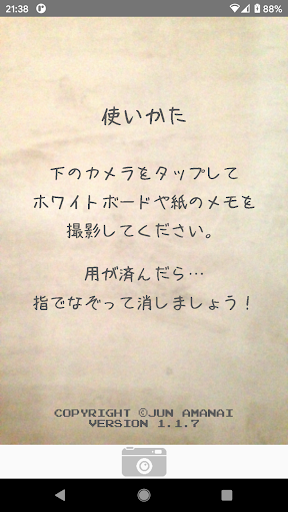 21:38
88%
使いかた
下のカメラをタップして
ホワイトボードや紙のメモを
撮影してください。
用が済んだら…
指でなぞって消しましょう!
COPYRIGHT ©JUN AMANAI
VERSION 1.1.7